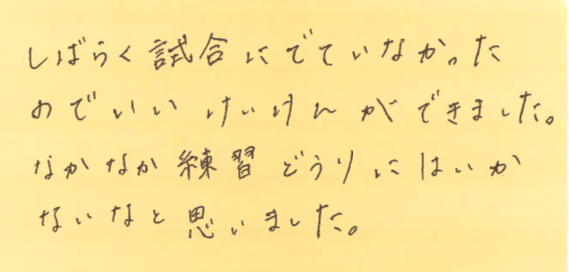 しばらく試合にでていなかった
のでいいけいけんができました。
なかなか練習どうりにはいか
ないなと思いました。